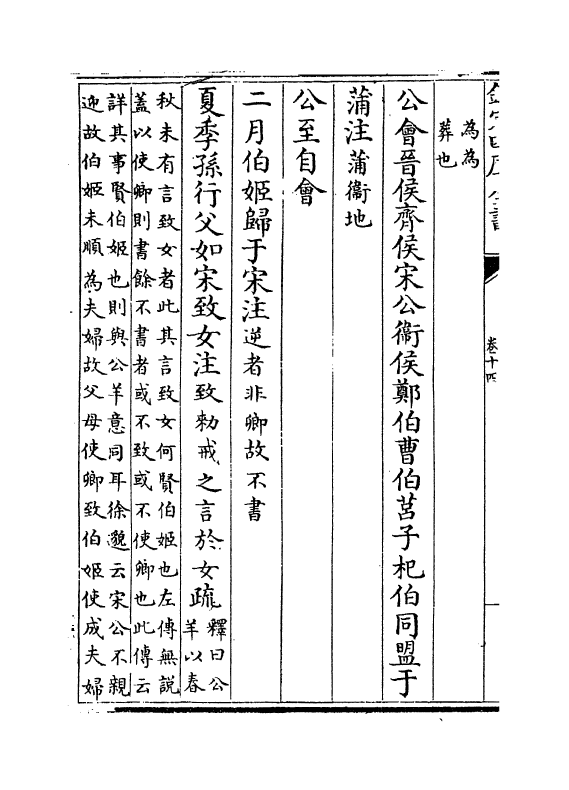 欽定四庫全書
卷十四
為為
葬也
公會晉侯齊侯宋公衞侯鄭伯曹伯莒子杞伯同盟于
蒲注蒲衞地
公至自會
二月伯姬歸于宋注逆者非卿故不書
夏季孫行父如宋致女注致勑戒之言於女疏
釋曰公
羊以春
秋未有言致女者此其言致女何賢伯姬也左傳無說
蓋以使卿則書餘不書者或不致或不使卿也此傳云
詳其事賢伯姬也則與公羊意同耳徐邈云宋公不親
迎故伯姬未順為夫婦故父母使卿致伯姬使成夫婦